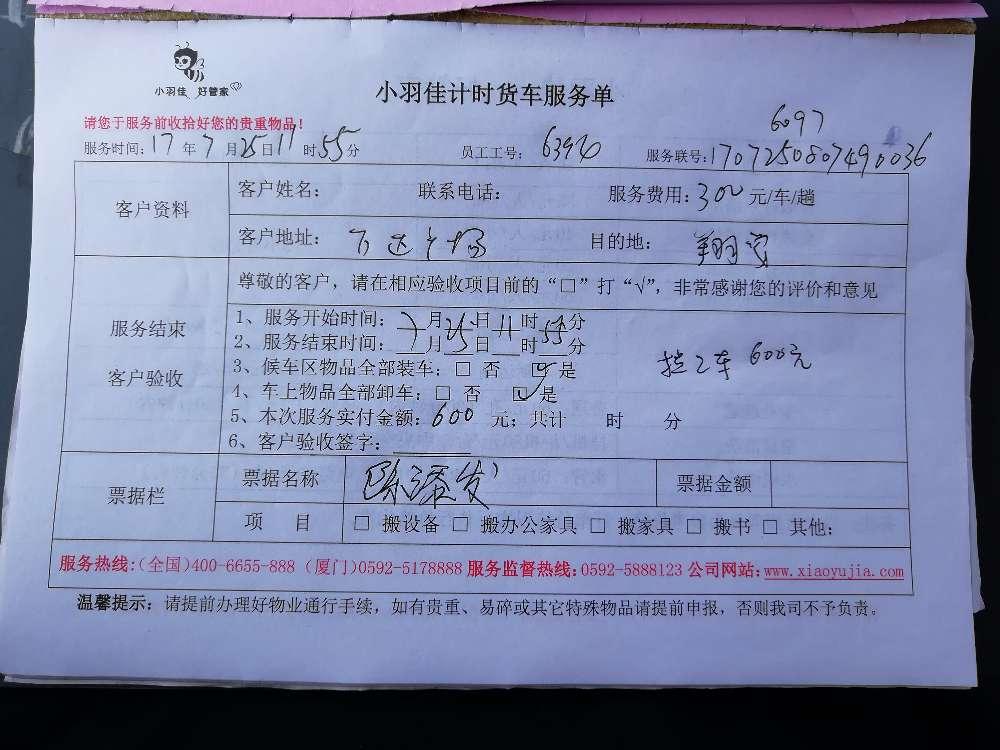 小羽佳 好管家
小羽佳计时货车服务单
请您于服务前收拾好您的贵重物品!
6097
服务时间:17年7月25日11时55分 员工工号: 6396 服务联号:1707250807490036
客户资料
客户姓名: 联系电话: 服务费用:300元/车/趟
客户地址: 万达广场 目的地: 翔安
服务结束
客户验收
尊敬的客户，请在相应验收项目前的“□”打“√”，非常感谢您的评价和意见
1、服务开始时间: 7月25日11时55分
2、服务结束时间: 月 日 时 分
3、候车区物品全部装车:□ 否 ☑是
4、车上物品全部卸车:□ 否 ☑是
5、本次服务实付金额:600 元; 共计 时 分
6、客户验收签字:
车 600元
票据栏
票据名称 票据金额
项 目 □ 搬设备 □ 搬办公家具 □ 搬家具 □ 搬书 □ 其他:
服务热线:(全国)400-6655-888 (厦门)0592-5178888 服务监督热线:0592-5888123 公司网站:www.xiaoyujia.com
温馨提示: 请提前办理好物业通行手续，如有贵重、易碎或其它特殊物品请提前申报，否则我司不予负责。